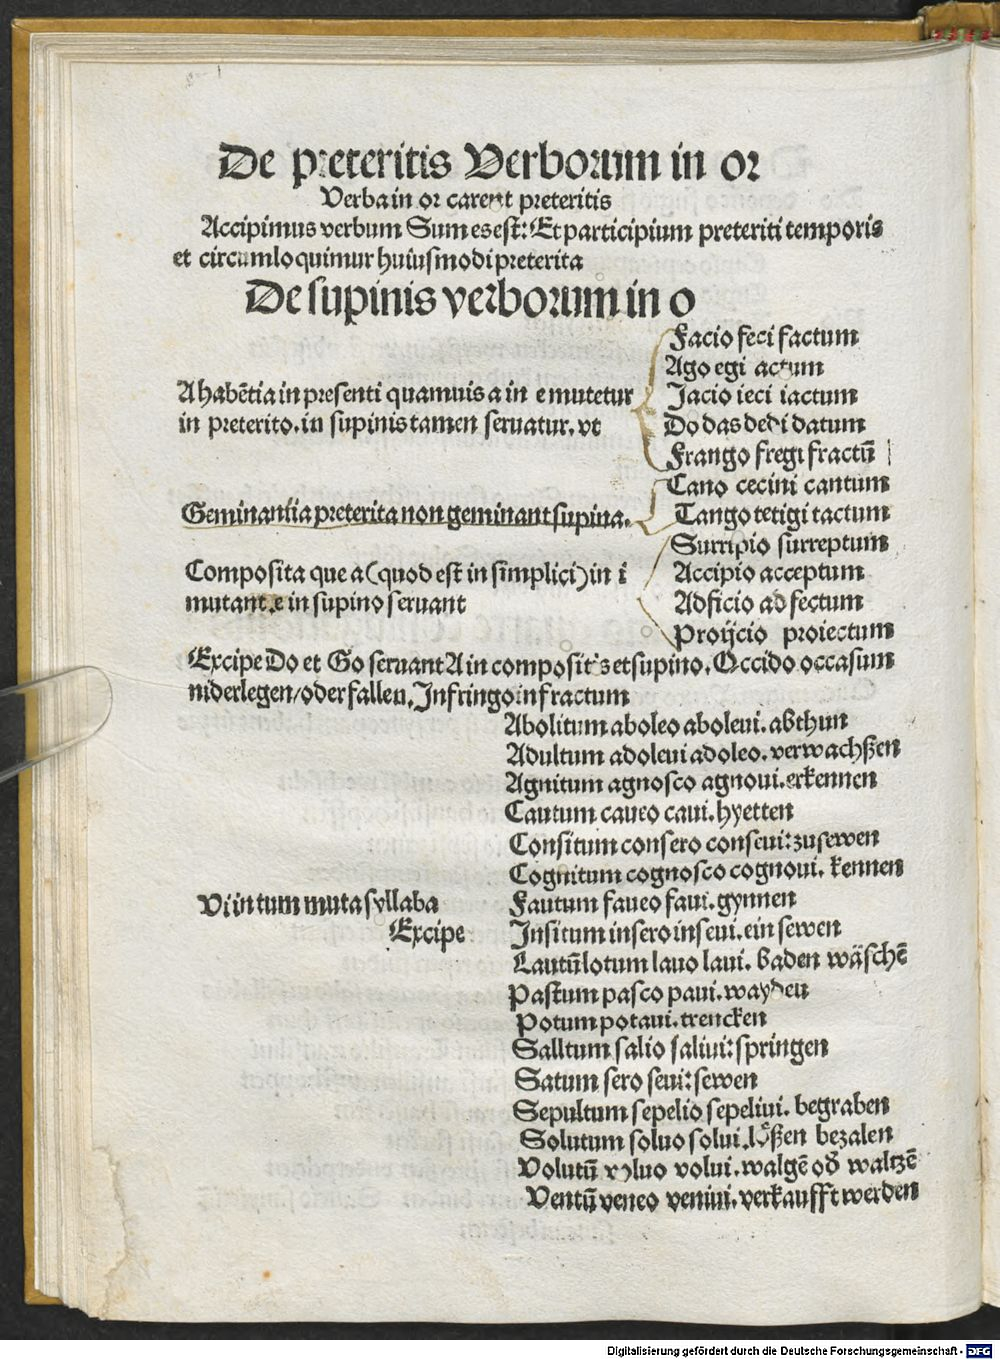 De preteritis Verborum in or
Verba in or carent preteritis
Accipimus verbum Sum es est: Et participium preteriti temporis
et circumloquimur huiusmodi preterita
De supinis verborum in o
A habētia in presenti quamuis a in e mutetur
in preterito. in supinis tamen seruatur. vt
Facio feci factum
Ago egi actum
Jacio ieci iactum
Do das dedi datum
Frango fregi fractū
Geminantia preterita non geminant supina.
Cano cecini cantum
Tango tetigi tactum
Composita que a (quod est in simplici) in i
mutant. e in supino seruant
Surripio surreptum
Accipio acceptum
Adficio adfectum
Proijcio proiectum
Excipe Do et Go seruant A in compositis et supino. Occido occasum
niderlegen/oder fallen. Infringo infractum
Vi in tum muta syllaba
Excipe
Abolitum aboleo aboleui. abthun
Adultum adoleui adoleo. verwachßen
Agnitum agnosco agnoui. erkennen
Cautum caueo caui. hyetten
Consitum consero conseui: zusewen
Cognitum cognosco cognoui. kennen
Fautum faueo faui. gynnen
Insitum insero inseui. ein sewen
Lautū lotum lauo laui. baden wäschē
Pastum pasco paui. wayden
Potum potaui. trencken
Salltum salio saliui: springen
Satum sero seui: sewen
Sepultum sepelio sepeliui. begraben
Solutum soluo solui. lößen bezalen
Volutū voluo volui. walgē od waltzē
Ventū veneo veniui. verkaufft werden
Digitalisierung gefördert durch die Deutsche Forschungsgemeinschaft - DFG